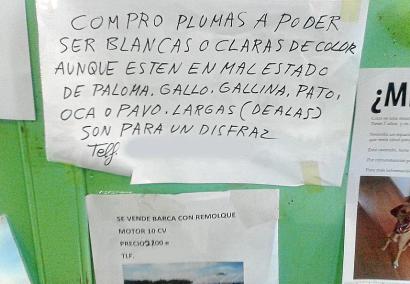 COMPRO PLUMAS A PODER
SER BLANCAS O CLARAS DE COLOR
AUNQUE ESTEN EN MAL ESTADO
DE PALOMA. GALLO. GALLINA. PATO,
OCA O PAVO. LARGAS (DE ALAS)
SON PARA UN DISFRAZ
Telf.
SE VENDE BARCA CON REMOLQUE
MOTOR 10 CV
PRECIO
TLF.
¿M